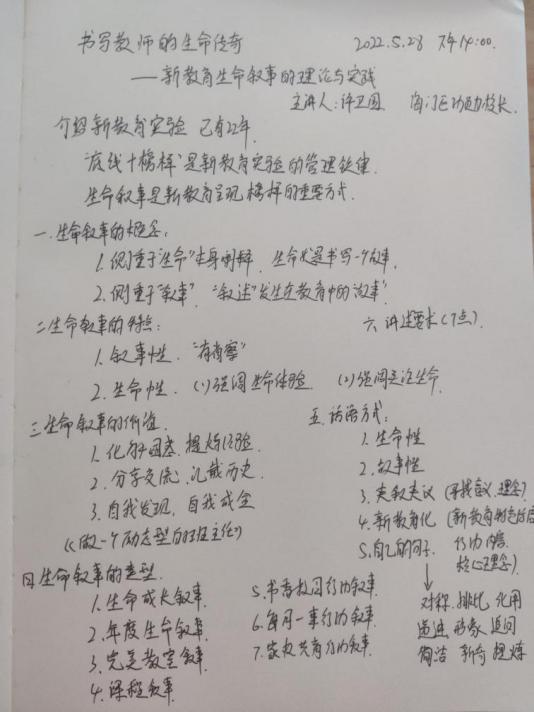 书写教师的生命传奇 2022.5.28 下午14:00.
——新教育生命叙事的理论与实践
主讲人:许卫国 海门区 校长.
介绍新教育实验 已有22年.
"底线+榜样"是新教育实验的管理铁律.
生命叙事是新教育呈现榜样的重要方式.
一.生命叙事的概念:
1.侧重于"生命"本身阐释 生命就是书写一个故事.
2.侧重于"叙事" "叙述"发生在教育中的"故事"
二.生命叙事的特点: 六.讲述要求(7点).
1.叙事性.
2.生命性. (1)强调生命体验. (2)强调生命.
三.生命叙事的价值. 五.话语方式:
1.化解困惑.提炼经验. 1.生命性
2.分享交流.汇成历史. 2.故事性
3.自我发现,自我成全 3.夹叙夹议 (寻找意义.理念)
《做一个动态型的班主任》 4.新教育化 (新教育特色
四.生命叙事的类型. 5.自己的句子. 行动
核心理念)
1.生命成长叙事. 5.书香校园行动叙事.
2.年度生命叙事. 6.每月一事行动叙事.
3.完美教室叙事 7.家校共育行动叙事.
4.课程叙事.
对称 排比 化用
递进 形象 追问
简洁 新奇 提炼